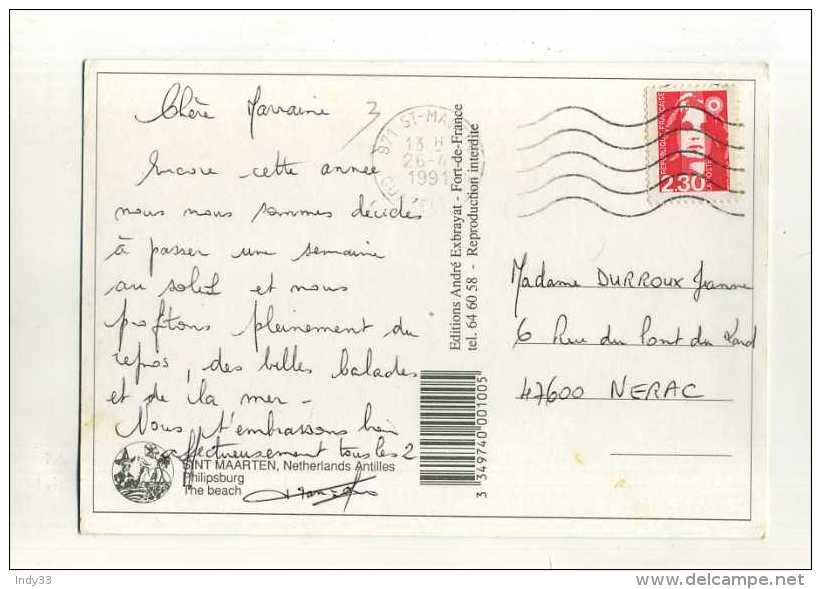 Chère Marraine
Encore cette année
nous nous sommes décidés
à passer une semaine
au soleil et nous
profitons pleinement du
repos, des belles balades
et de la mer -
Nous t'embrassons bien
affectueusement tous les 2
3
971 ST-MA
13 H
26-4
1991
REPUBLIQUE FRANÇAISE
2,30
LA POSTE
Editions André Exbrayat - Fort-de-France
tel. 64 60 58 - Reproduction interdite
Madame DURROUX Jeanne
6 Rue du Pont du
47600 NERAC
3 349740 001005
SINT MAARTEN, Netherlands Antilles
Philipsburg
The beach
Indy33
http://www.delcampe.net